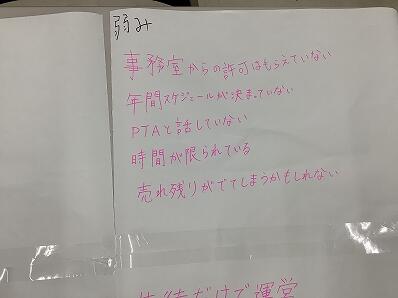 弱み
事務室からの許可はもらえていない
年間スケジュールが決まっていない
PTAと話していない
時間が限られている
売れ残りがでてしまうかもしれない
生徒だけで運営